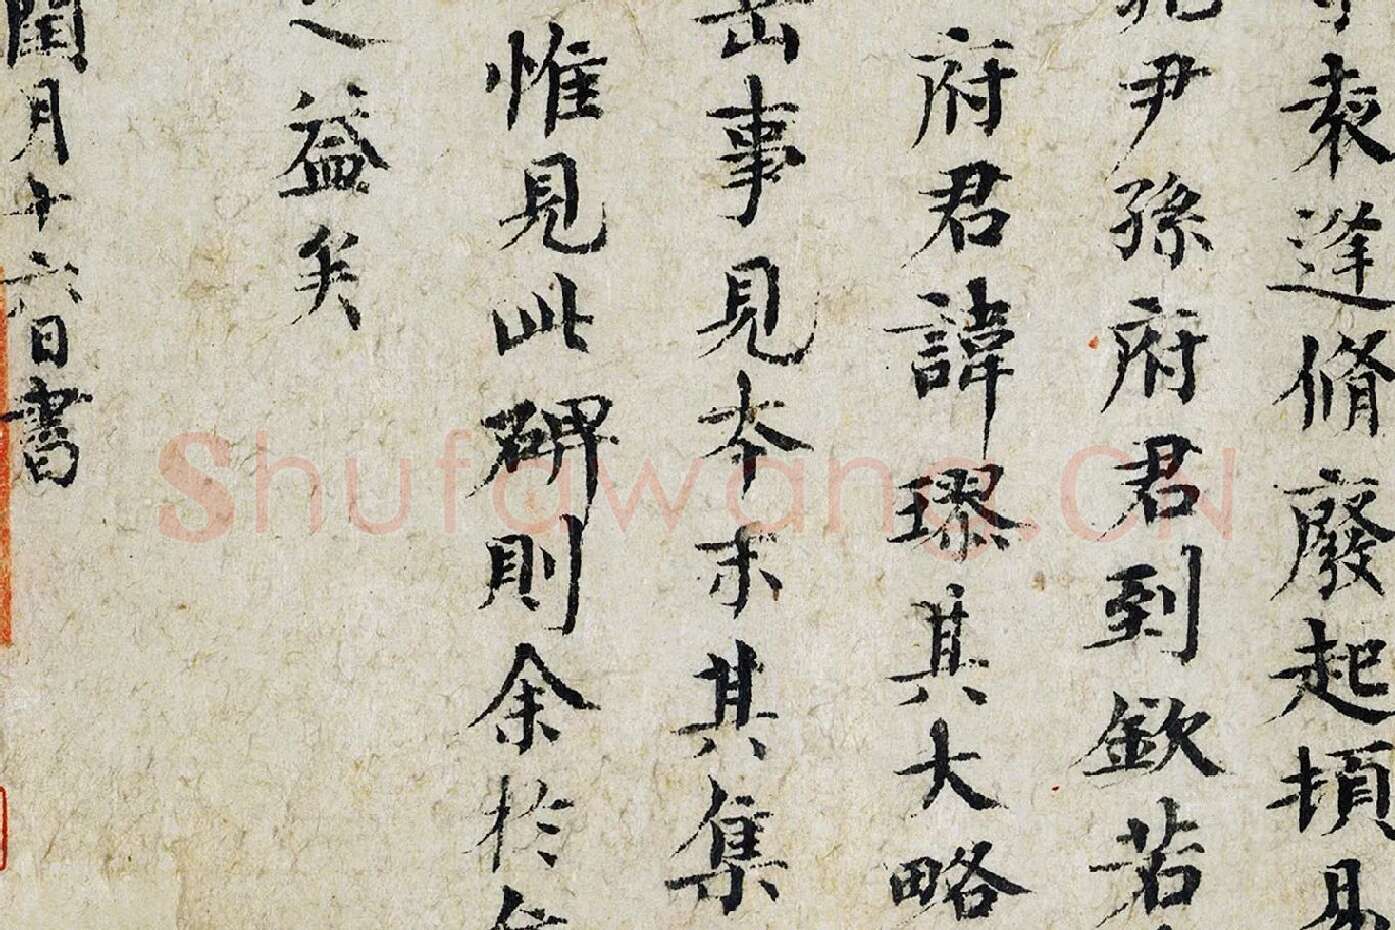 袁逢脩廢起頓易
尹孫府君到欽若
府君諱璆其大略
岳事見本末其集
惟見此碑則余於
之益矣
閏月十六日書
Shufawang.CN